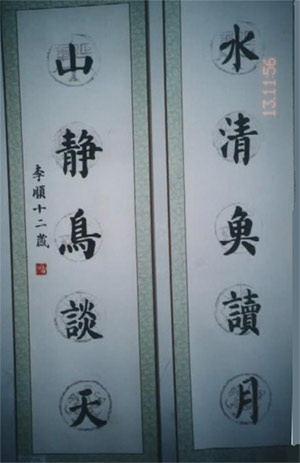 水清魚讀月
山静鳥談天
李順十二歲
13.11:56